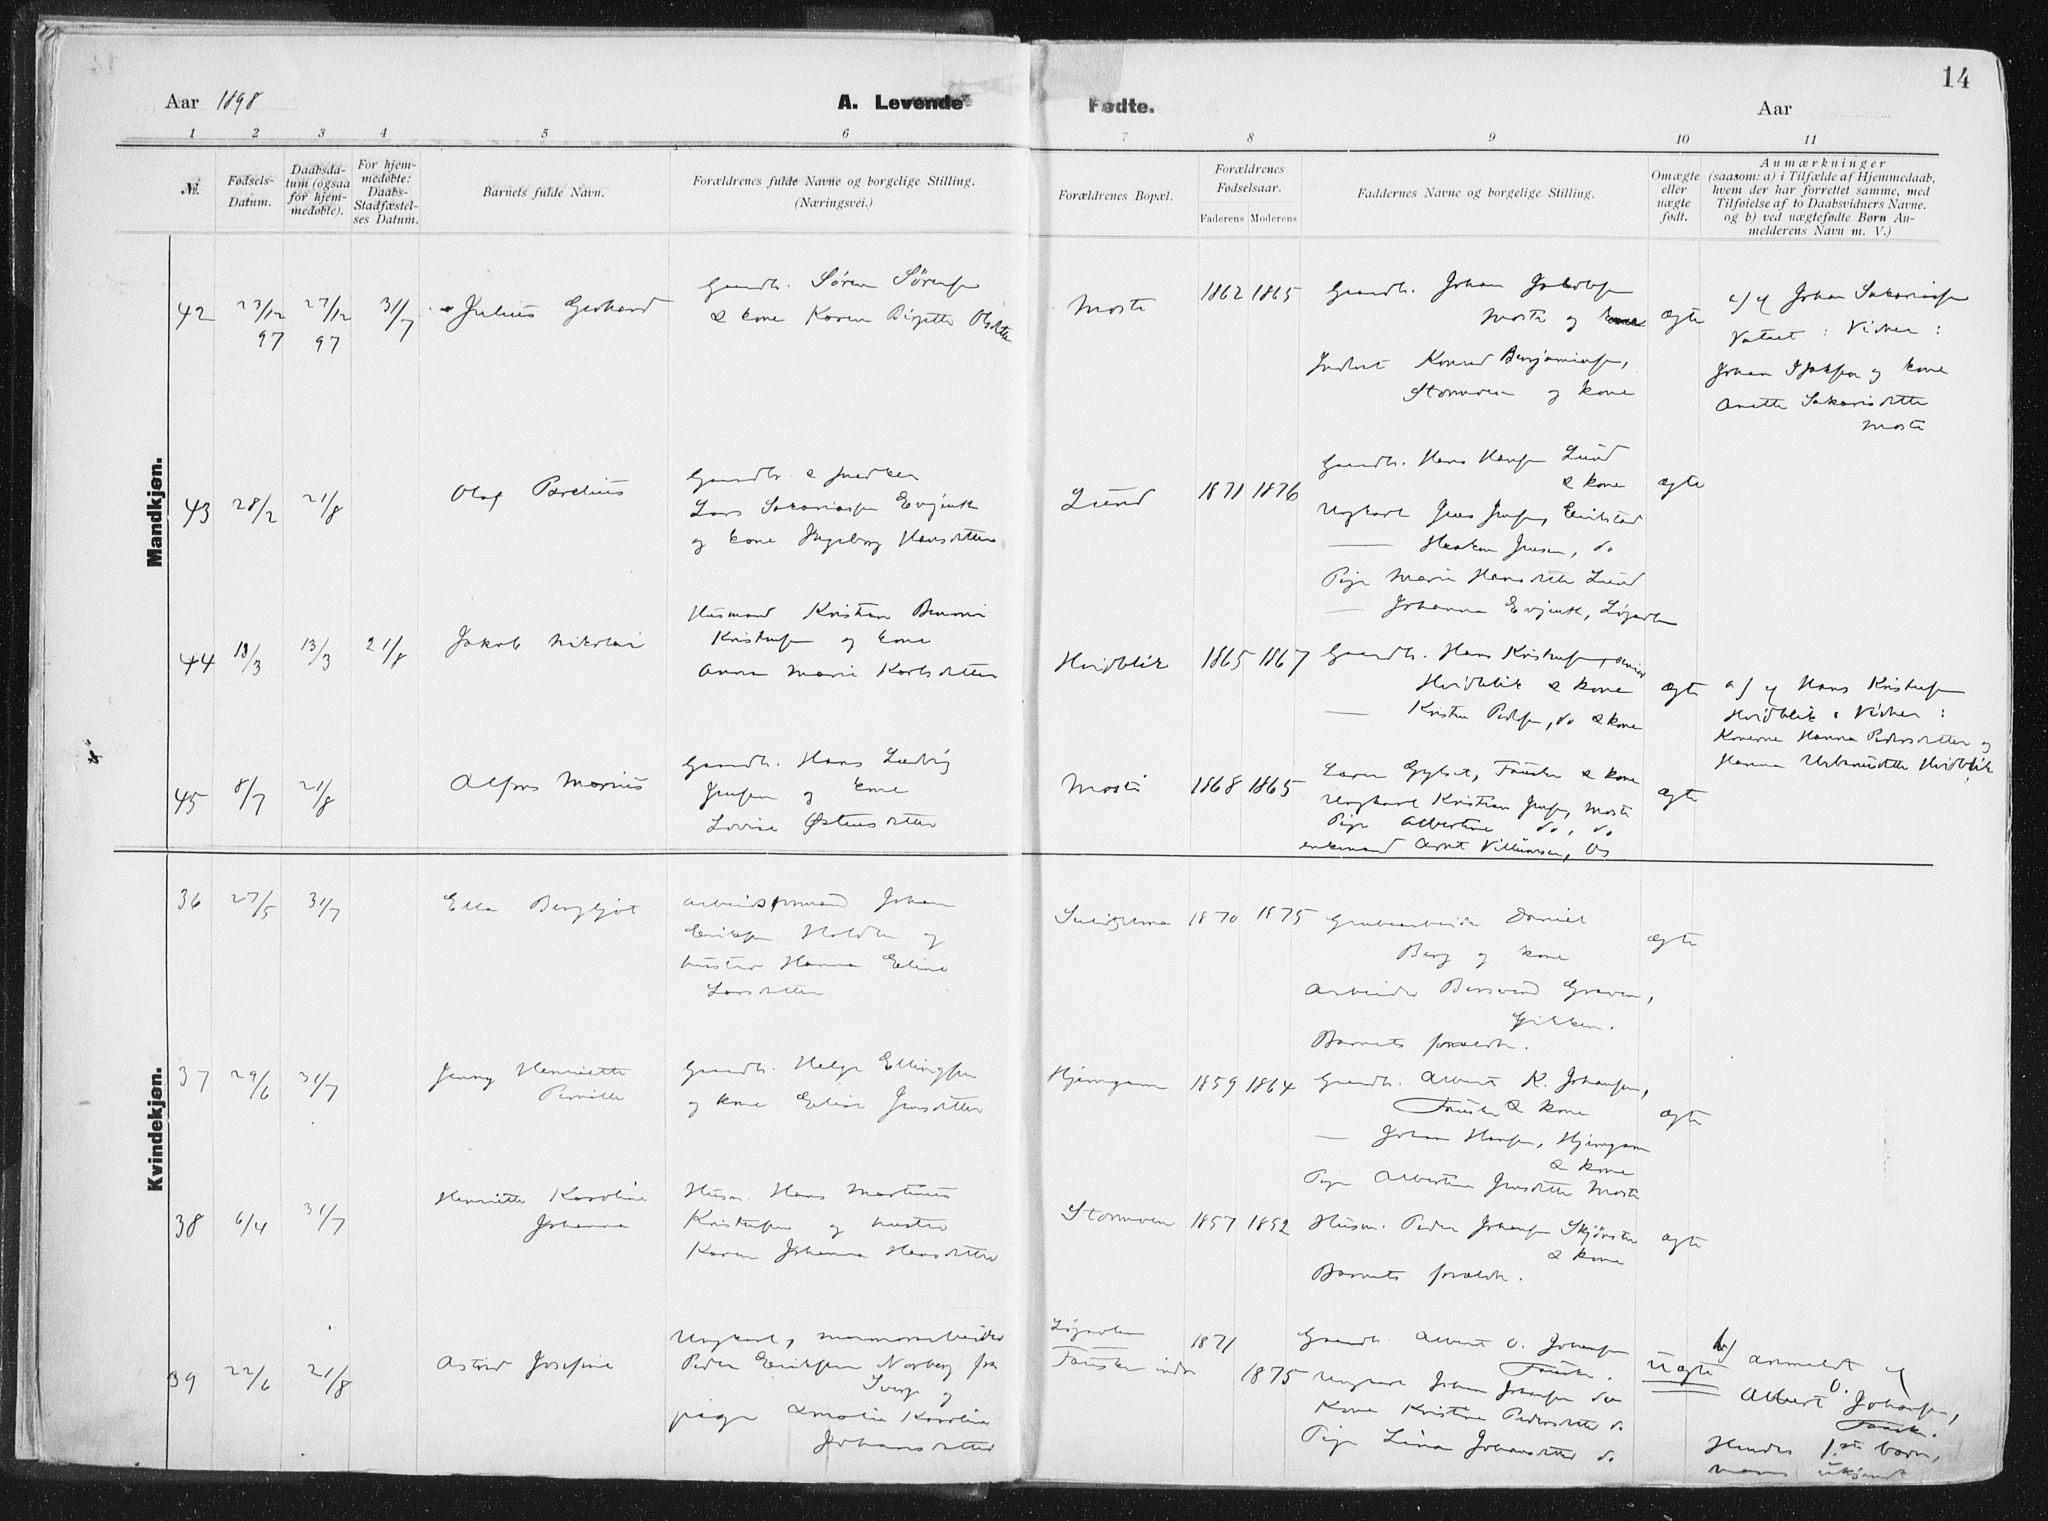 14
Aar 1898
A. Levende Fødte.
Aar
1 2 3 4 5 6 7 8 9 10 11
№.
Fødsels-Datum.
Daabsdatum (ogsaa for hjemmedøbte).
For hjemmedøbte: Daabs-Stadfæstelses Datum.
Barnets fulde Navn.
Forældrenes fulde Navne og borgelige Stilling.
(Næringsvei.)
Forældrenes Bopæl.
Forældrenes Fødselsaar.
Faderens Moderens
Faddernes Navne og borgelige Stilling.
Omægte eller uægte født.
Anmærkninger
(saasom: a) i Tilfælde af Hjemmedaab,
hvem der har forrettet samme, med
Tilføielse af to Daabsvidners Navne.
og b) ved uægtefødte Børn Anmelderens Navn m. V.)
Mandkjøn.
42 23/12 97 27/12 97 31/7 Julius Gerhard
Gaardb. Søren Sørensen
& kone Karen Birgitte Olsdatter
Moste 1862 1865
Gaardb. Johan Jakobsen
Moste og kone
Konrad Benjaminsen,
Stormoen og kone
ægte
a/ af Johan Sakariassen
Vatnet : Vidner :
Johan og kone
Anette Sakariasdatter
Moste
43 28/2 21/8 Olaf Parelius
Gaardb. & Snedker
Lars Sakariassen Evjenth
og kone Ingeborg Hansdatter
Lund 1871 1876
Gaardb. Hans Hansen Lund
& kone
Ungkarl Jens Jensen, Erikstad
— Haakon Jensen, do
Pige Marie Hansdatter Lund
— Johanna Evjenth, Løgavlen
ægte
44 13/3 13/3 21/8 Jakob Nikolai
Husmand Kristian Benoni
Kristensen og kone
Anna Marie Karlsdatter
Hvidblik 1865 1867
Gaardb. Hans Kristensen, senior
Hvidblik & kone
— Kristen Pedersen, do & kone
ægte
a/ af Hans Kristensen
Hvidblik : Vidner :
Konerne Hanna Pedersdatter og
Hanna Hvidblik
45 8/7 21/8 Alfons Marius
Gaardb. Hans Ludvig
Jensen og kone
Lovise Østensdatter
Moste 1868 1865
Gylset, Fauske & kone
Ungkarl Kristian Jensen, Moste
Pige Albertine do, do
enkemand Arnt Villumsen, Os
ægte
Kvindekjøn.
36 27/5 31/7 Ella Bergljot
Arbeidsmand Johan
Eriksen Holden og
hustru Hanna Eline
Larsdatter
Sulitjelma 1870 1875
Grubearbeider Daniel
Berg og kone
Arbeider Graven,
Barnets forældre.
ægte
37 29/6 31/7 Jenny Henriette
Pernille
Gaardb. Helge Ellingsen
og kone Elise Jensdatter
Hjemgam 1859 1864
Gaardb. Albert K. Johansen,
Fauske & kone
— Johan Hansen, Hjemgam
& kone
Pige Albertine Jensdatter Moste
ægte
38 6/4 31/7 Henriette Karoline
Johanna
Husm. Hans Martinus
Kristensen og hustru
Karen Johanna Hansdatter
Stormoen 1857 1852
Husm. Peder Johansen Skjørstad
& kone
Barnets forældre.
ægte
39 22/6 21/8 Astrid Josefine
Ungkarl, marmorarbeider
Peder Eriksen Norberg fra
Sverg og
pige Amalie Karoline
Johansdatter
Løgavlen
Fauskeeidet
1871
1875
Gaardb. Albert O. Johansen
Fauske.
Ungkarl Johan Johansen do
Kone Kristine Pedersdatter do
Pige Lina Johansdatter do
Uægte
b/ anmeldt af
Albert O. Johansen,
Fauske.
Hendes 1ste barn,
hans ukjendt